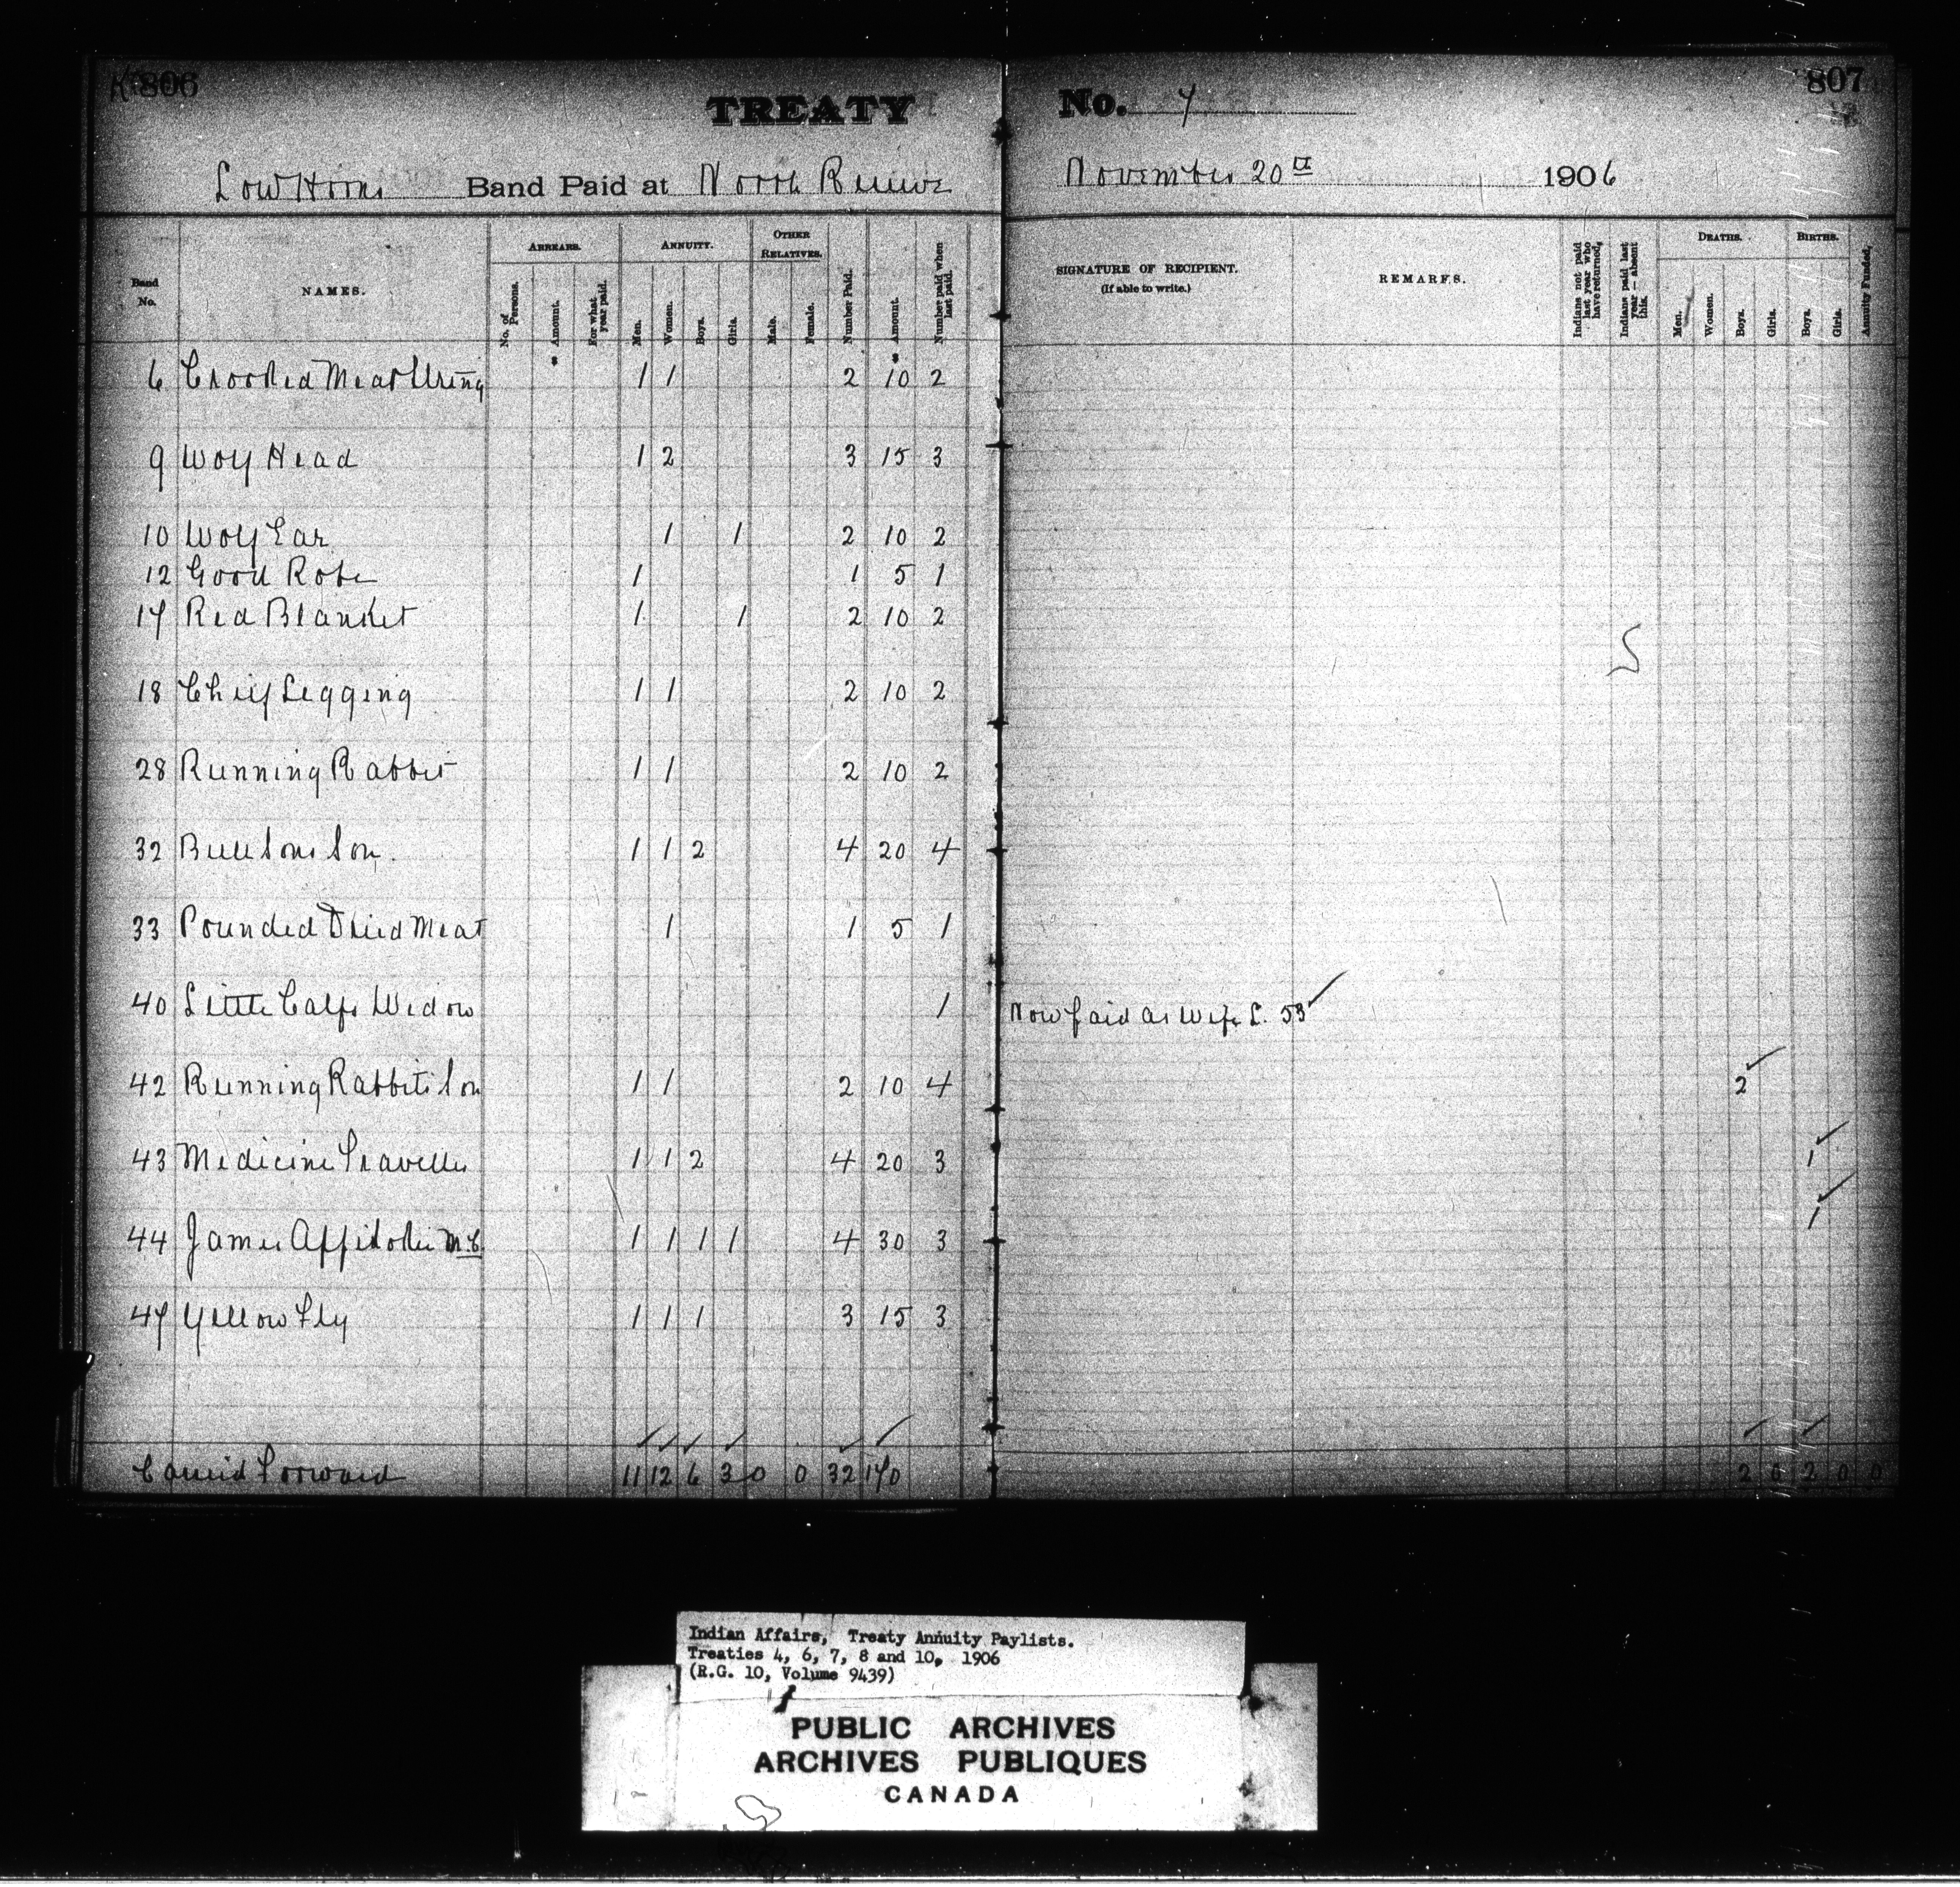 806
TREATY
Low Horns Band Paid at North Reserve
Band No.
NAMES.
ARREARS.
No. of Persons.
Amount.
For what year paid.
ANNUITY.
Men.
Women.
Boys.
Girls.
OTHER RELATIVES.
Male.
Female.
Number Paid.
Amount.
Number paid when last paid.
6 Crooked Meat String 1 1 2 10 2
9 Wolf Head 1 2 3 15 3
10 Wolf Ear 1 1 2 10 2
12 Good Robe 1 1 5 1
17 Red Blanket 1 1 2 10 2
18 Chief Legging 1 1 2 10 2
28 Running Rabbit 1 1 2 10 2
32 Bull Sons Son 1 1 2 4 20 4
33 Pounded Dried Meat 1 1 5 1
40 Little Calfs Widow 1
42 Running Rabbits Son 1 1 2 10 4
43 Medicine Traveller 1 1 2 4 20 3
44 James Appikokie M.C. 1 1 1 1 4 30 3
47 Yellow Fly 1 1 1 3 15 3
Carried Forward 11 12 6 3 0 0 32 170
807
No. 7
November 20th 1906
SIGNATURE OF RECIPIENT.
(If able to write.)
REMARKS.
Indians not paid last year who have returned,
Indians paid last year — absent this.
DEATHS.
Men.
Women.
Boys.
Girls.
BIRTHS.
Boys.
Girls.
Annuity Funded,
Now paid as Wife L. 53
2
1
1
2 0 2 0 0
Indian Affairs, Treaty Annuity Paylists.
Treaties 4, 6, 7, 8 and 10, 1906
(R.G. 10, Volume 9439)
PUBLIC ARCHIVES
ARCHIVES PUBLIQUES
CANADA